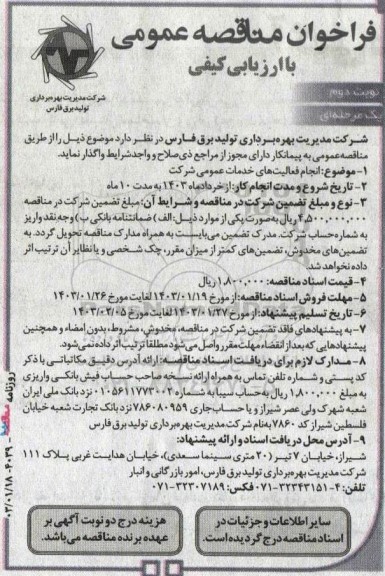 فراخوان مناقصه عمومی
با ارزیابی کیفی
شرکت مدیریت بهره‌برداری
تولید برق فارس
نوبت دوم
یک مرحله‌ای
شرکت مدیریت بهره‌برداری تولید برق فارس در نظر دارد موضوع ذیل را از طریق
مناقصه عمومی به پیمانکار دارای مجوز از مراجع ذی‌صلاح و واجد شرایط واگذار نماید.
۱- موضوع: انجام فعالیت‌های خدمات عمومی شرکت
۲- تاریخ شروع و مدت انجام کار: از خرداد ماه ۱۴۰۳ به مدت ۱۰ ماه
۳- نوع و مبلغ تضمین شرکت در مناقصه و شرایط آن: مبلغ تضمین شرکت در مناقصه
۴,۵۰۰,۰۰۰,۰۰۰ ریال به‌صورت یکی از موارد ذیل: الف) ضمانتنامه بانکی ب) وجه نقد واریز
به شماره حساب شرکت. مدرک تضمین می‌بایست به همراه مدارک مناقصه تحویل گردد. به
تضمین‌های مخدوش، تضمین‌های کمتر از میزان مقرر، چک شخصی و یا نظایر آن ترتیب اثر
داده نخواهد شد.
۴- قیمت اسناد مناقصه: ۱,۸۰۰,۰۰۰ ریال
۵- مهلت فروش اسناد مناقصه: از مورخ ۱۴۰۳/۰۱/۱۹ لغایت مورخ ۱۴۰۳/۰۱/۲۶
۶- تاریخ تسلیم پیشنهاد: از مورخ ۱۴۰۳/۰۱/۲۷ لغایت مورخ ۱۴۰۳/۰۲/۰۵
۷- به پیشنهادهای فاقد تضمین شرکت در مناقصه، مخدوش، مشروط، بدون امضاء و همچنین
پیشنهادهایی که بعد از انقضاء مهلت مقرر واصل می‌شود مطلقا ترتیب اثر داده نمی‌شود.
۸- مدارک لازم برای دریافت اسناد مناقصه: ارائه آدرس دقیق مکاتباتی با ذکر
کد پستی و شماره تلفن تماس به همراه ارائه نسخه صاحب حساب فیش بانکی واریزی
به مبلغ ۱,۸۰۰,۰۰۰ ریال به‌حساب سیبا به شماره ۰۱۰۵۶۱۱۷۷۳۰۰۲ نزد بانک ملی ایران
شعبه شهرک ولی عصر شیراز و یا حساب جاری ۷۸۶۰۸۰۹۵۹ نزد بانک تجارت شعبه خیابان
فلسطین شیراز کد ۷۸۶۰ به‌نام شرکت مدیریت بهره‌برداری تولید برق فارس
۹- آدرس محل دریافت اسناد و ارائه پیشنهاد:
شیراز، خیابان ۷ تیر (۲۰ متری سینما سعدی)، خیابان هدایت غربی پلاک ۱۱۱
شرکت مدیریت بهره‌برداری تولید برق فارس، امور بازرگانی و انبار
تلفن: ۴-۳۲۳۴۳۱۵۱-۰۷۱ فکس: ۳۲۳۰۷۱۸۹-۰۷۱
سایر اطلاعات و جزئیات در
اسناد مناقصه درج گردیده است.
هزینه درج دو نوبت آگهی بر
عهده برنده مناقصه می‌باشد.
روزنامه
۰۳/۰۱/۱۸-۴۰۳۹